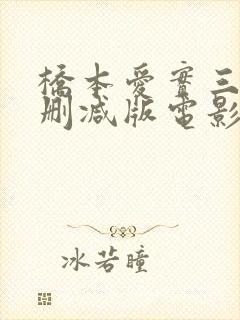 橋本爱實三
删减版電影
冰若瞳